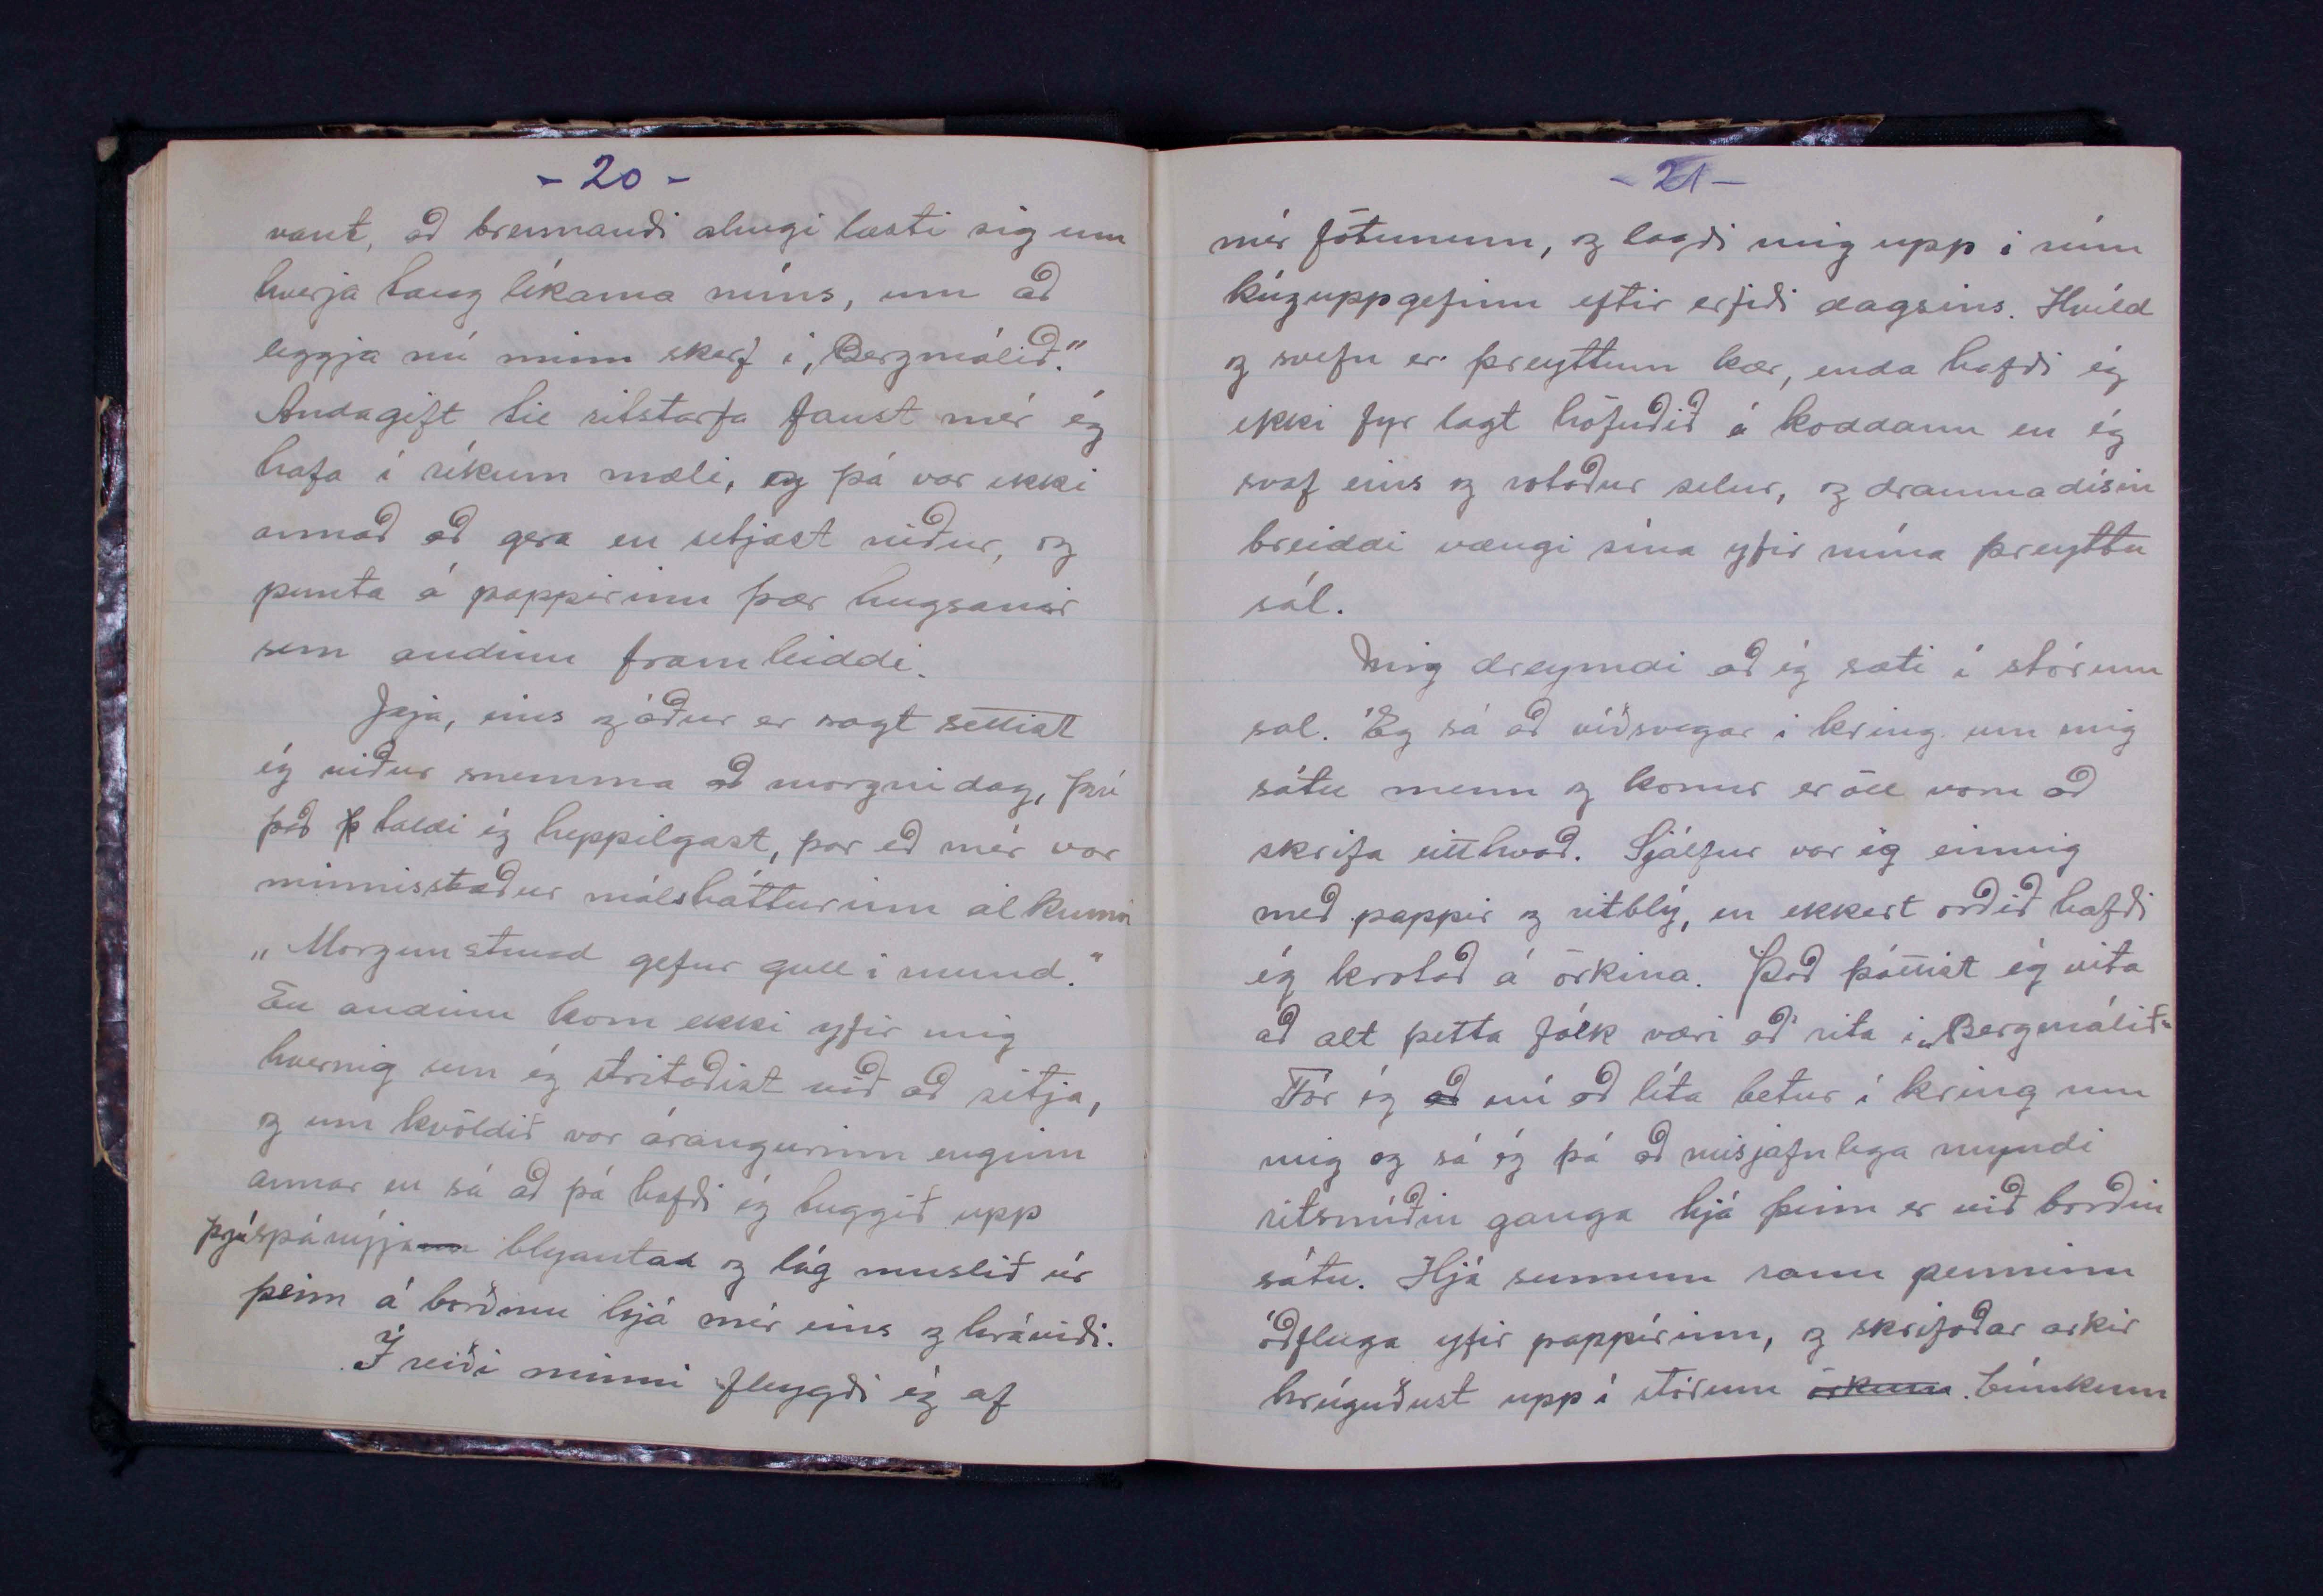 - 20 -
vant, að brennandi áhugi læsti sig um
hverja taug líkama míns, um að
leggja nú minn skerf í „Bergmálið."
Andagift til ritstarfa fanst mér ég
hafa í ríkum mæli, og þá var ekki
annað að gera en setjast niður, og
punta á pappírinn þær hugsanir
sem andinn framleiddi.
Jæja, eins og áður er sagt settist
ég niður snemma að morgni dag, því
það þ taldi ég heppilgast, þar eð mér var
minnisstæður málshátturinn alkunni
„Morgunstund gefur gull í mund."
En andinn kom ekki yfir mig
hvernig sem ég stritaðist við að sitja,
og um kvöldið var árangurinn enginn
annar en sá að þá hafði ég tuggið upp
þrjá spánýja blyantaa og lág muslið úr
þeim á borðinu hjá mér eins og hráviði.
Í reiði minni fleygði ég af
- 21 -
mér fötunum, og lagði mig upp í rúm
kúguppgefinn eftir erfiði dagsins. Hvíld
og svefn er þreyttum kær, enda hafði ég
ekki fyr lagt höfuðið á koddann en ég
svaf eins og rotaður selur, og draumadísin
breiddi vængi sína yfir mína þreyttu
sál.
Mig dreymdi að ég sæti í stórum
sal. Ég sá að víðsvegar í kring um mig
sátu menn og konur er öll voru að
skrifa eitthvað. Sjálfur var ég einnig
með pappír og ritblý, en ekkert orðið hafði
ég krotað á örkina. Það þóttist ég vita
að alt þetta fólk væri að rita í „Bergmálið"
Fór ég að nú að líta betur í kring um
mig og sá ég þá að misjafnlega myndi
ritsmíðin ganga hjá þeim er við borðin
sátu. Hjá sumum rann penninn
óðfluga yfir pappírinn, og skrifaðar arkir
hrúguðust upp í stórum örkum. búnkum